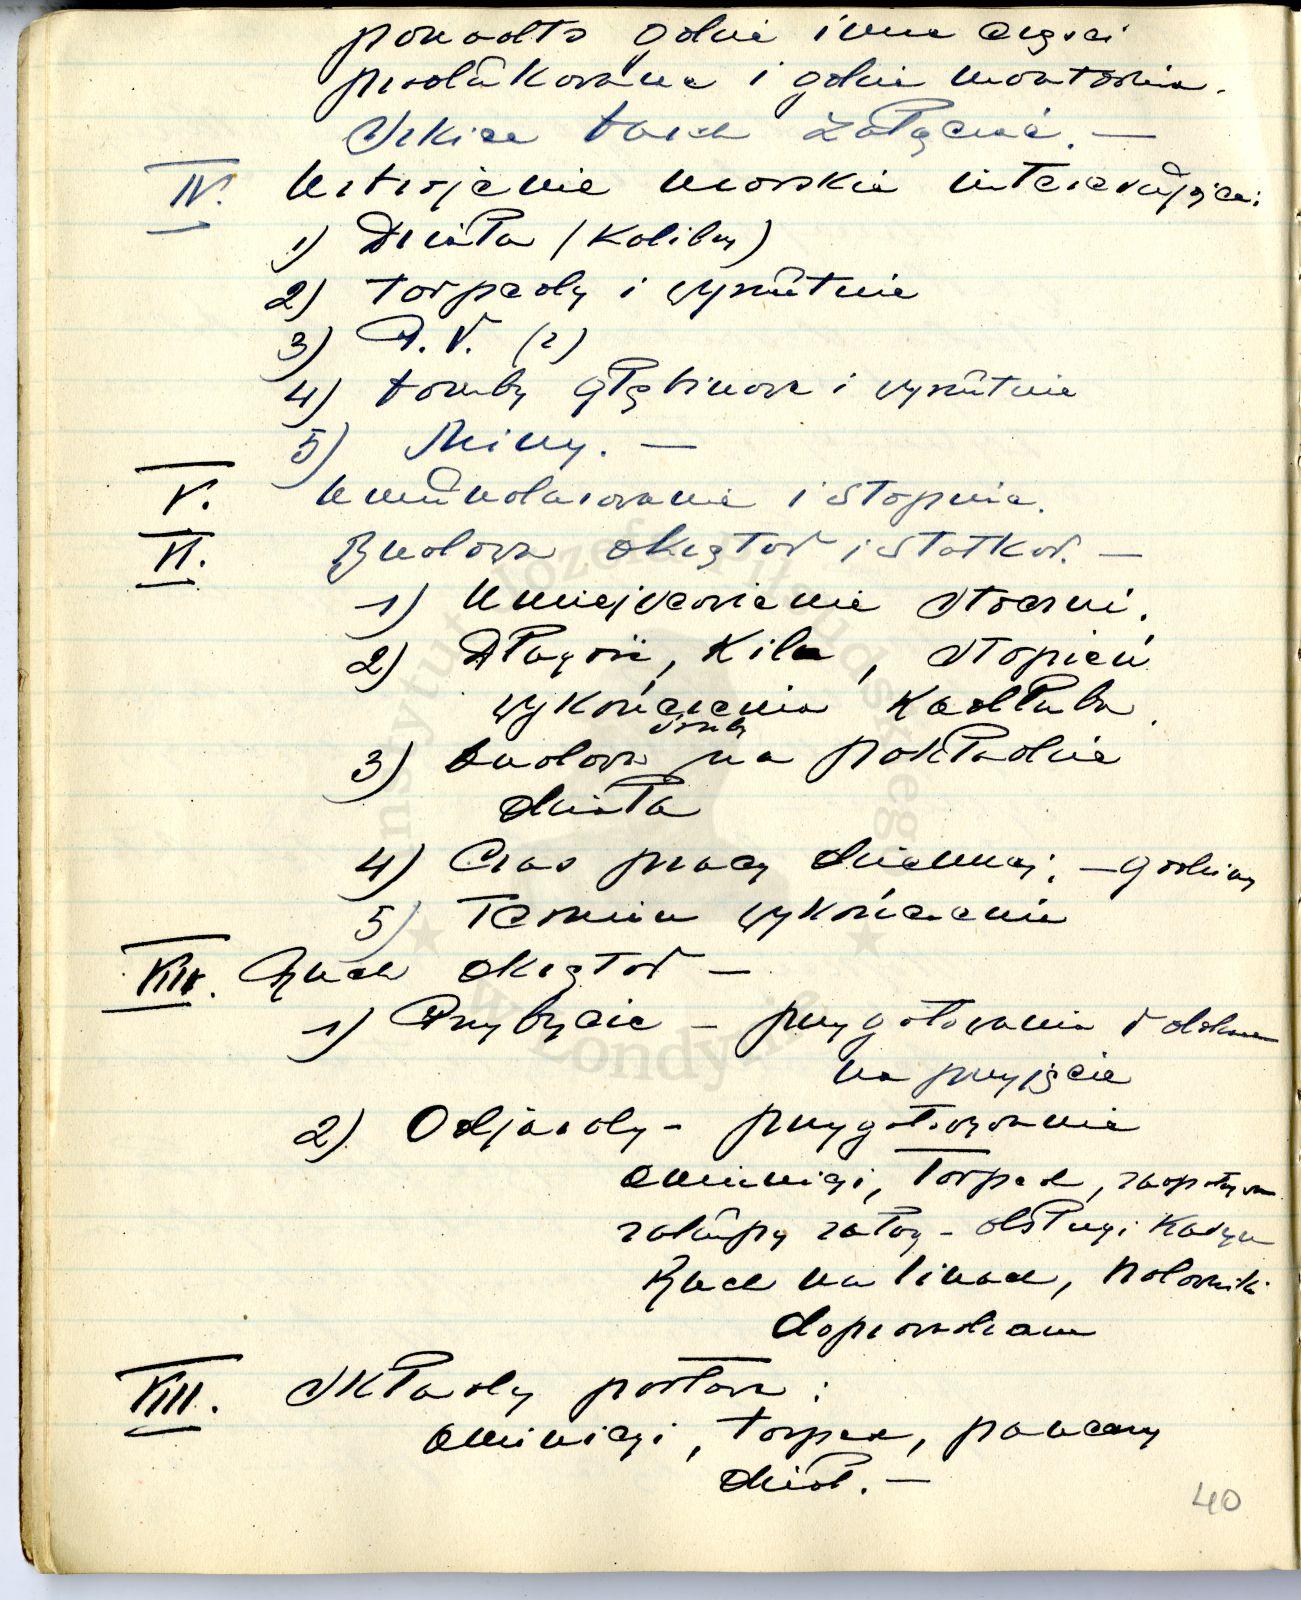 ponadto gdzie inne części
produkowane i gdzie montownia.
Szkice tych załączyć. —
IV. Uzbrojenie morskie interesujące:
1) Działa (Kalibry)
2) torpedy i wyrzutnie
3) P. V. (?)
4) bomby głębinowe i wyrzutnie
5) Miny. —
V. Umundurowanie i stopnie.
VI. Budowa okrętów i statków. —
1) Umiejscowienie stoczni.
2) Długość, Kila, stopień
wykończenia Kadłuba.
3) budowa na pokładzie
działa
4) Czas pracy dziennej. — godziny
5) Termin wykończenia
VII. Ruch okrętów —
1) Przybycie — przygotowania w
na przyjęcie
2) Odjazdy — przygotowanie
amunicji, Torped,
zakupy załogi — obsługi
Ruch na linach, holowniki
doprowadzam
VIII. Składy portowe:
amunicji, torped, pancerzy
dział. —
40
Instytut Józefa Piłsudskiego
w Londynie